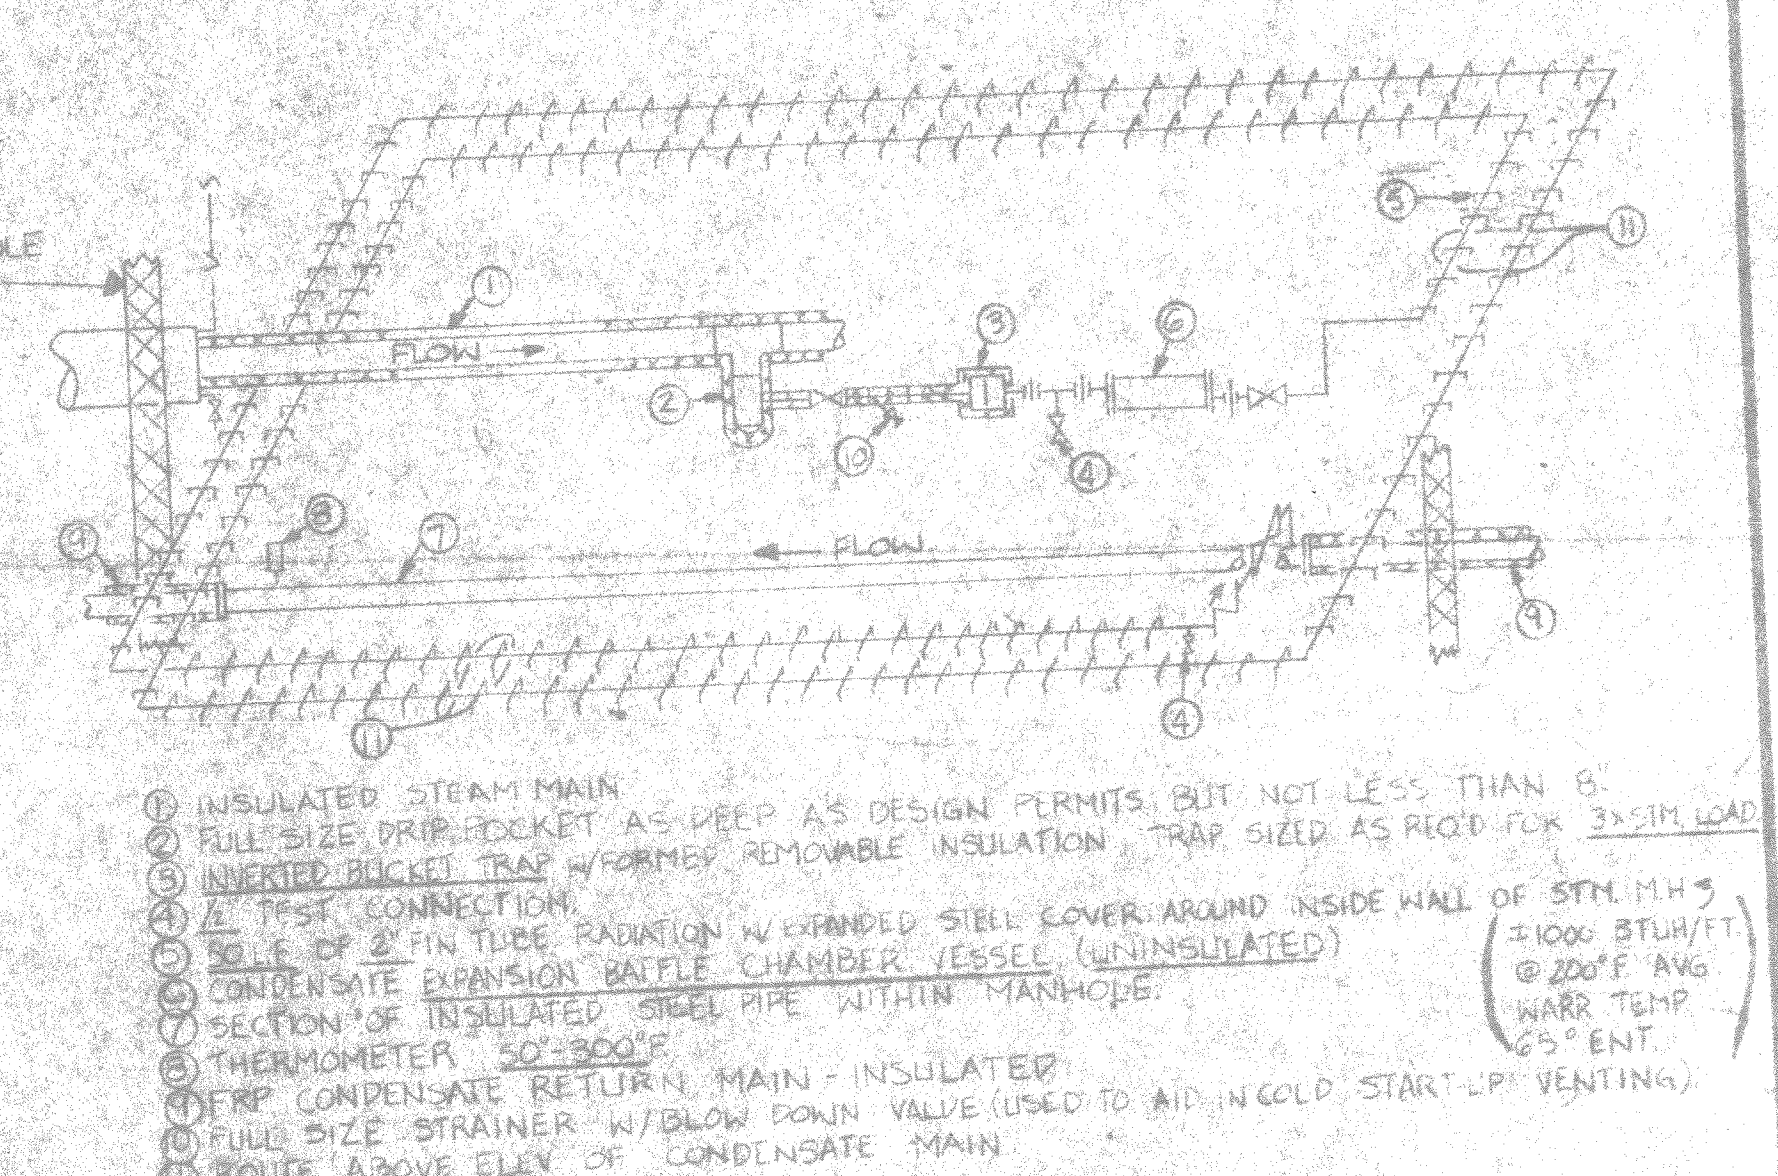 OLE
5
11
1
FLOW
3
6
2
10
4
8
9
7
FLOW
9
4
11
① INSULATED STEAM MAIN
② FULL SIZE DRIP POCKET AS DEEP AS DESIGN PERMITS BUT NOT LESS THAN 8".
③ INVERTED BUCKET TRAP W/FORMED REMOVABLE INSULATION, TRAP SIZED AS REQ'D FOR 3x STM. LOAD.
④ 1/2 TEST CONNECTION.
⑤ 50 L.F. OF 2" FIN TUBE RADIATION W/ EXPANDED STEEL COVER AROUND INSIDE WALL OF STM. M.H 3
(±1000 BTUH/FT.
@ 200°F. AVG.
WARR TEMP
65° ENT.)
⑥ CONDENSATE EXPANSION BAFFLE CHAMBER VESSEL (UNINSULATED)
⑦ SECTION OF INSULATED STEEL PIPE WITHIN MANHOLE.
⑧ THERMOMETER 50°-300°F
⑨ FRP CONDENSATE RETURN MAIN - INSULATED
⑩ FULL SIZE STRAINER W/BLOW DOWN VALVE (USED TO AID IN COLD START-UP VENTING).
ROUTE ABOVE ELEV OF CONDENSATE MAIN